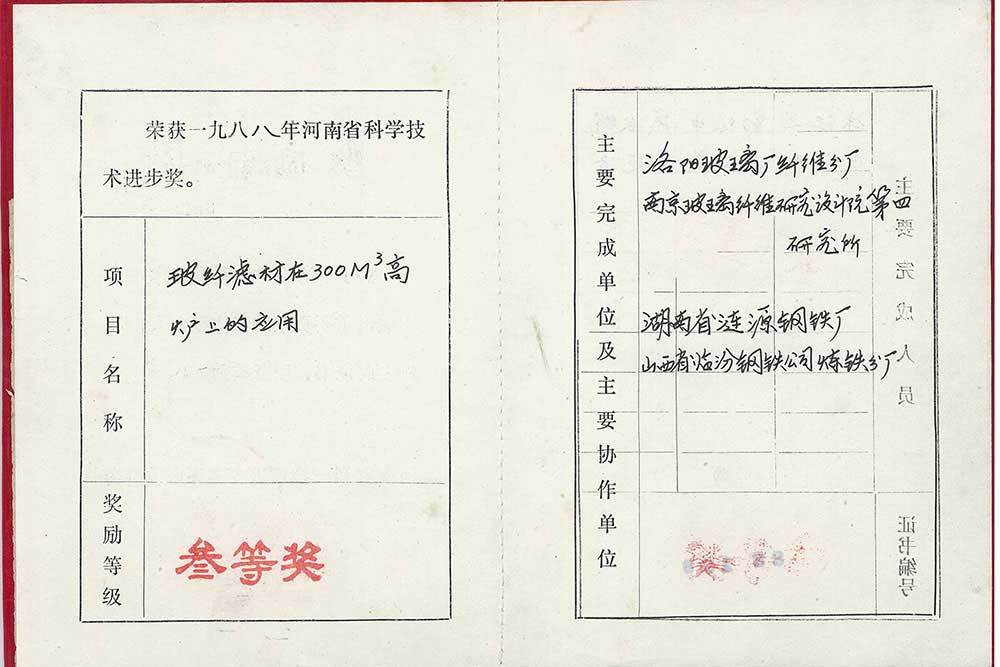 荣获一九八八年河南省科学技
术进步奖。
项目名称
玻纤滤材在300M³高
炉上的应用
奖励等级
叁等奖
主要完成单位及主要协作单位
洛阳玻璃厂纤维分厂
南京玻璃纤维研究设计院第四
研究所
湖南省涟源钢铁厂
山西省临汾钢铁公司炼铁分厂
主要完成人员
证书编号